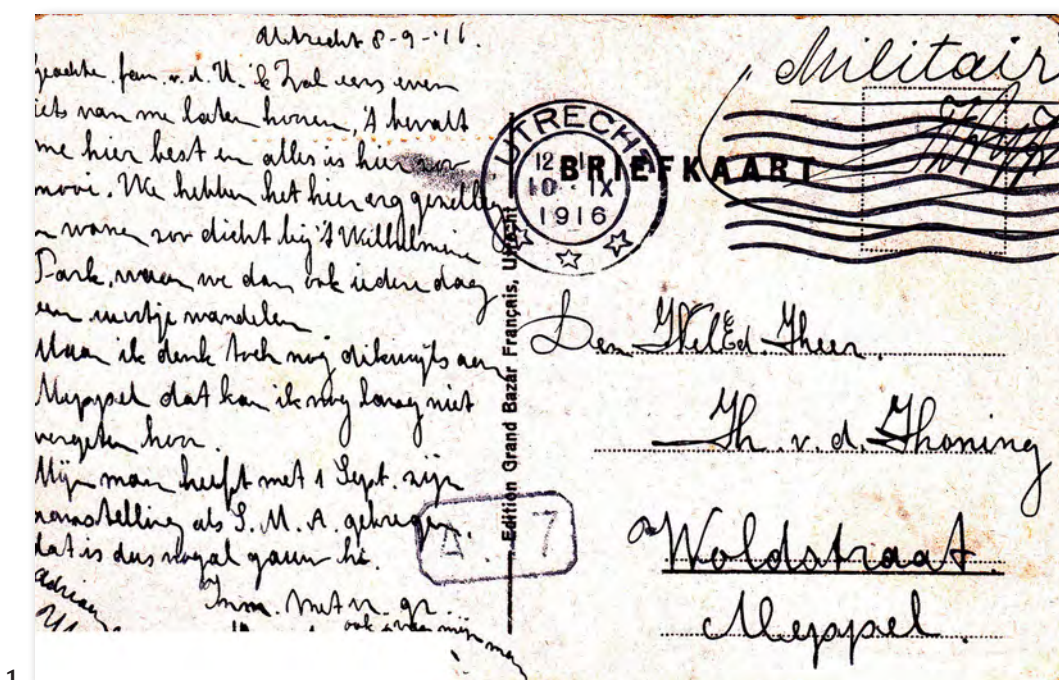 Utrecht 8-9-'16.
Geachte fam. v. d. U. 'k Zal eens even
iets van me laten hooren, 't bevalt
me hier best en alles is hier zoo
mooi. We hebben het hier erg gezellig
n wonen zoo dicht bij 't Wilhelmina
Park, waar we dan ook iedere dag
een uurtje wandelen
Maar ik denk toch nog dikwijls aan
Meppel dat kan ik nog lang niet
vergeten hoor.
Mijn man heeft met 1 Sept. zijn
aanstelling als S. M. A. gekregen.
dat is dus nogal gauw hè.
Met vr. gr.
ook van mijn man
Militair
UTRECHT
12 - 1
10 · IX
1916
BRIEFKAART
Edition Grand Bazar Français, Utrecht
7
Den WelEd. Heer.
H. v. d. Honing
Woldstraat.
Meppel.
1